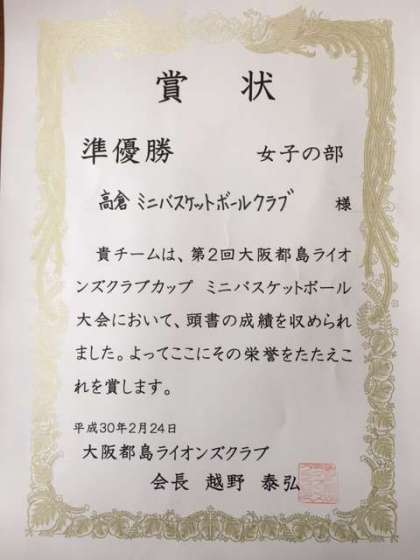 賞状
準優勝 女子の部
高倉 ミニバスケットボールクラブ 様
貴チームは、第2回大阪都島ライオ
ンズクラブカップ ミニバスケットボール
大会において、頭書の成績を収められ
ました。よってここにその栄誉をたたえこ
れを賞します。
平成30年2月24日
大阪都島ライオンズクラブ
会長 越野 泰弘